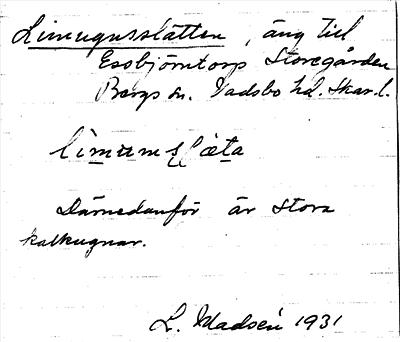 Limugnsslätten, äng till
Esbjörntorp Storegården
Bergs sn. Vadsbo hd. Skar. l.
Därnedanför är stora
kalkugnar.
L. Madsén 1931